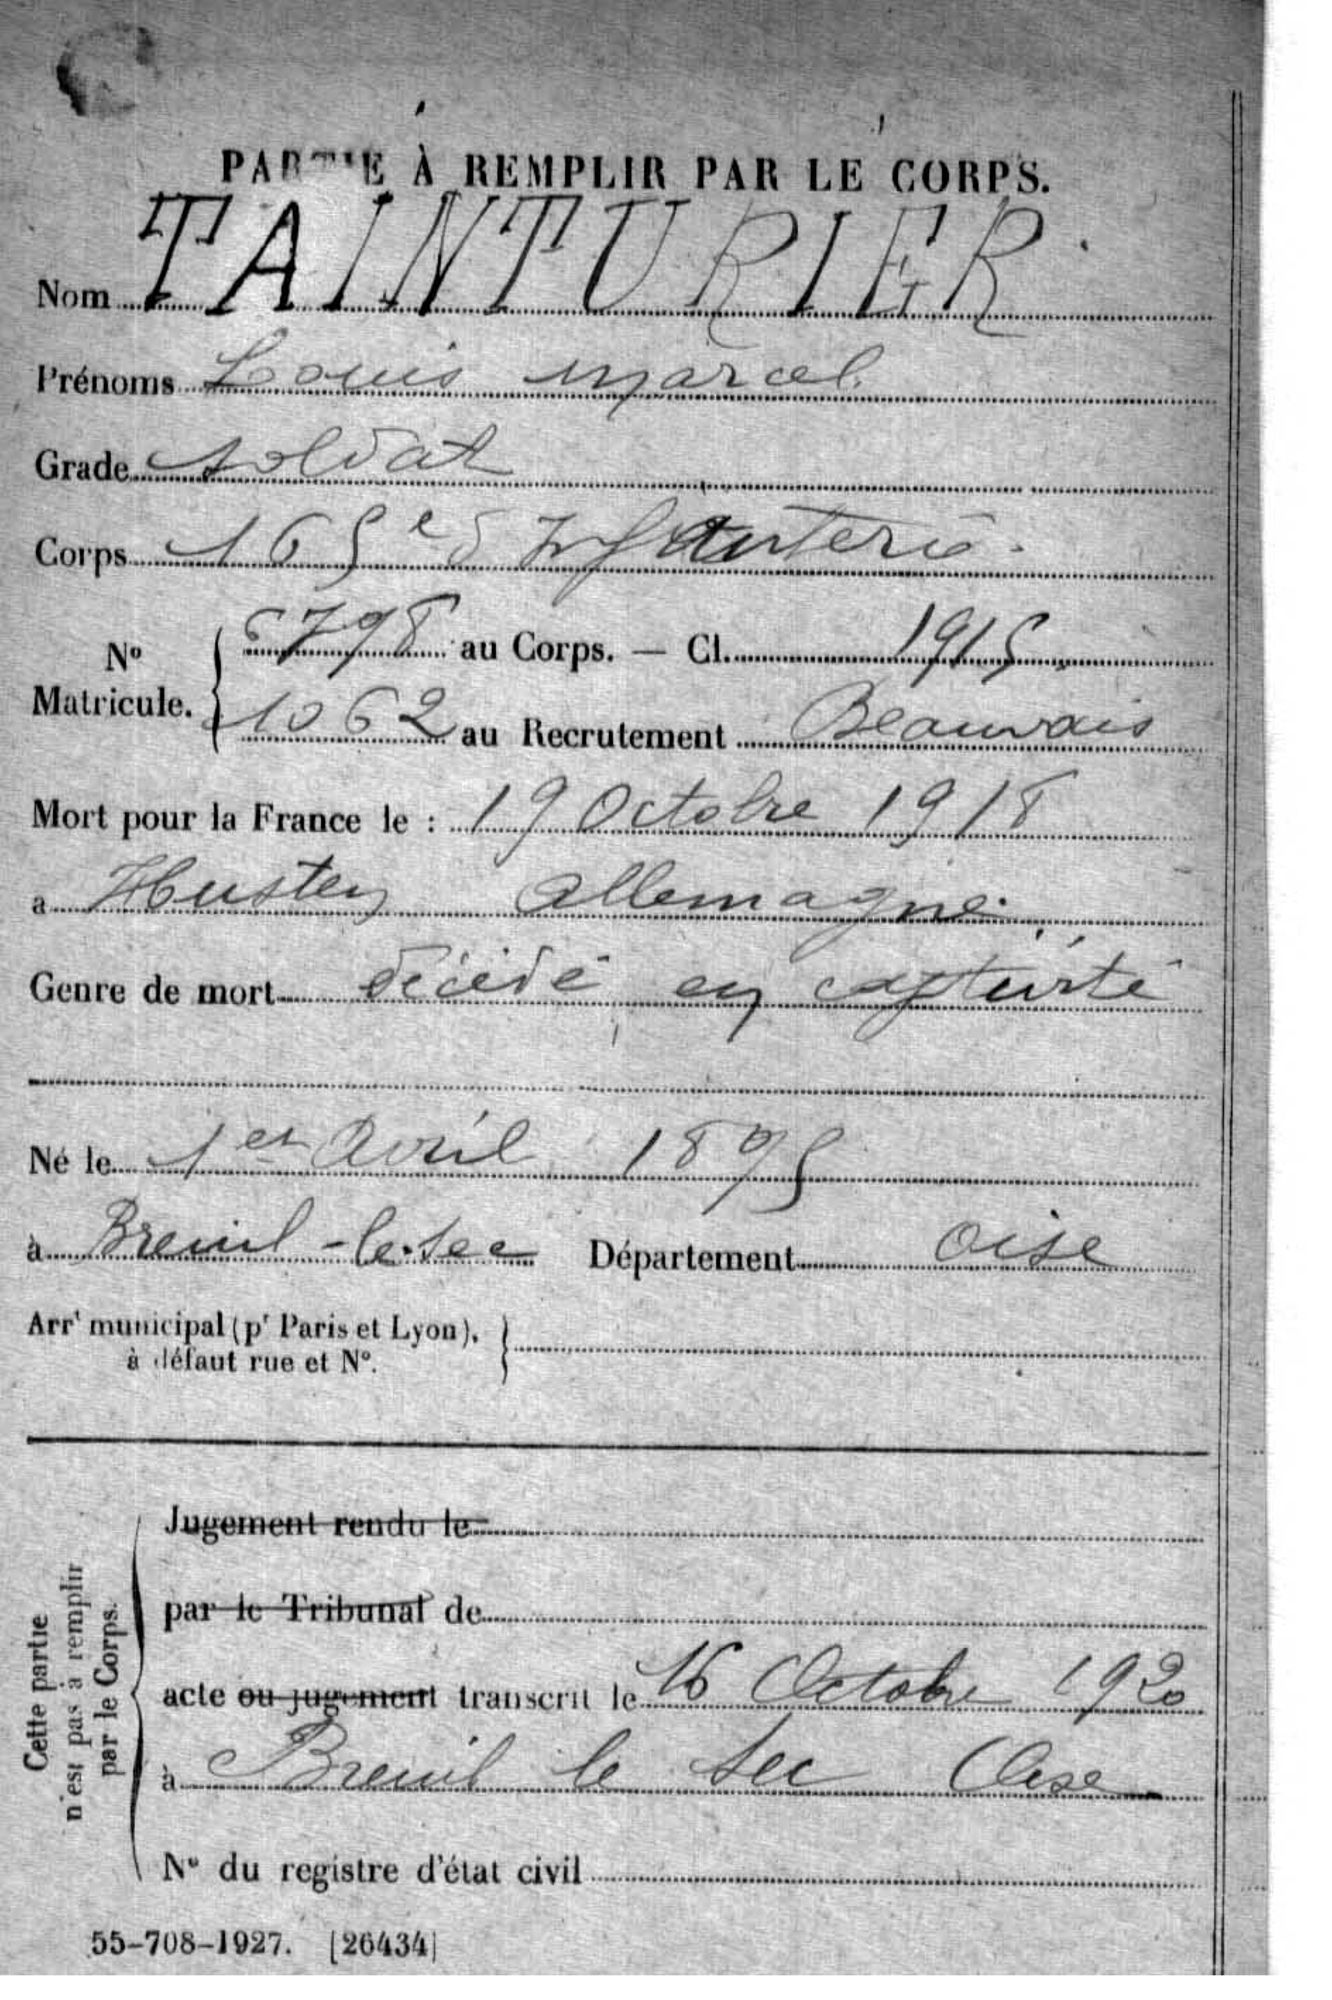 PARTIE À REMPLIR PAR LE CORPS.
Nom TAINTURIER
Prénoms Louis Marcel
Grade soldat
Corps 165e d'Infanterie
No Matricule. 6798 au Corps. — Cl. 1915
1062 au Recrutement Beauvais
Mort pour la France le : 19 Octobre 1918
a Husten Allemagne
Genre de mort décédé en captivité
Né le 1er Avril 1895
à Breuil-le-Sec Département Oise
Arrt municipal (pr Paris et Lyon),
à défaut rue et No.
Cette partie
n'est pas à remplir
par le Corps.
Jugement rendu le
par le Tribunal de
acte ou jugement transcrit le 16 Octobre 1920
à Breuil le Sec Oise
No du registre d'état civil
55-708-1927. [26434]